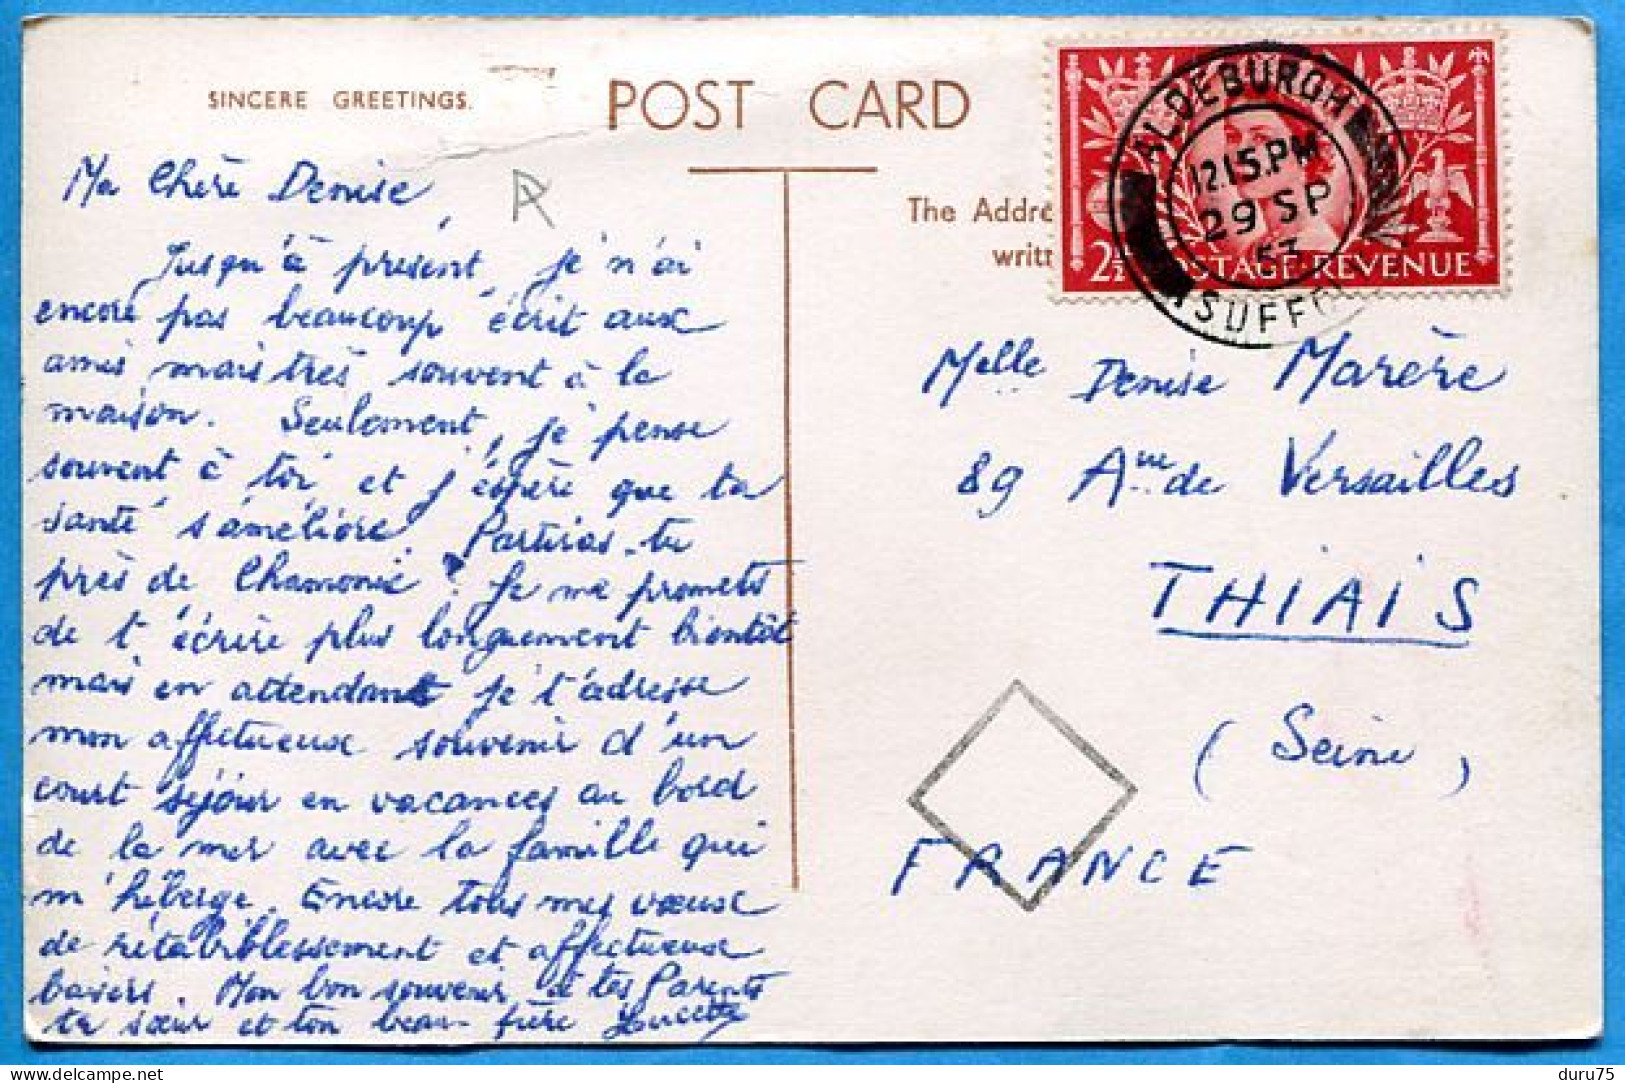 SINCERE GREETINGS.
POST CARD
Ma Chère Denise,
Jusqu'à présent, je n'ai
encore pas beaucoup écrit aux
amis mais très souvent à la
maison. Seulement, je pense
souvent à toi et j'espère que ta
santé s'améliore. Partiras-tu
près de Chamonix? Je me promets
de t'écrire plus longuement bientôt
mais en attendant je t'adresse
mon affectueux souvenir d'un
court séjour en vacances au bord
de la mer avec la famille qui
m'héberge. Encore tous mes voeux
de rétablissement et affectueux
baisers. Mon bon souvenir à tes Parents
ta soeur et ton beau-frère Lucette
The Addre
writt
ALDEBURGH
12.15.PM
29 SP
53
SUFFOL
2½ POSTAGE REVENUE
Melle Denise Marère
89 Avue de Versailles
THIAIS
(Seine)
FRANCE
duru75